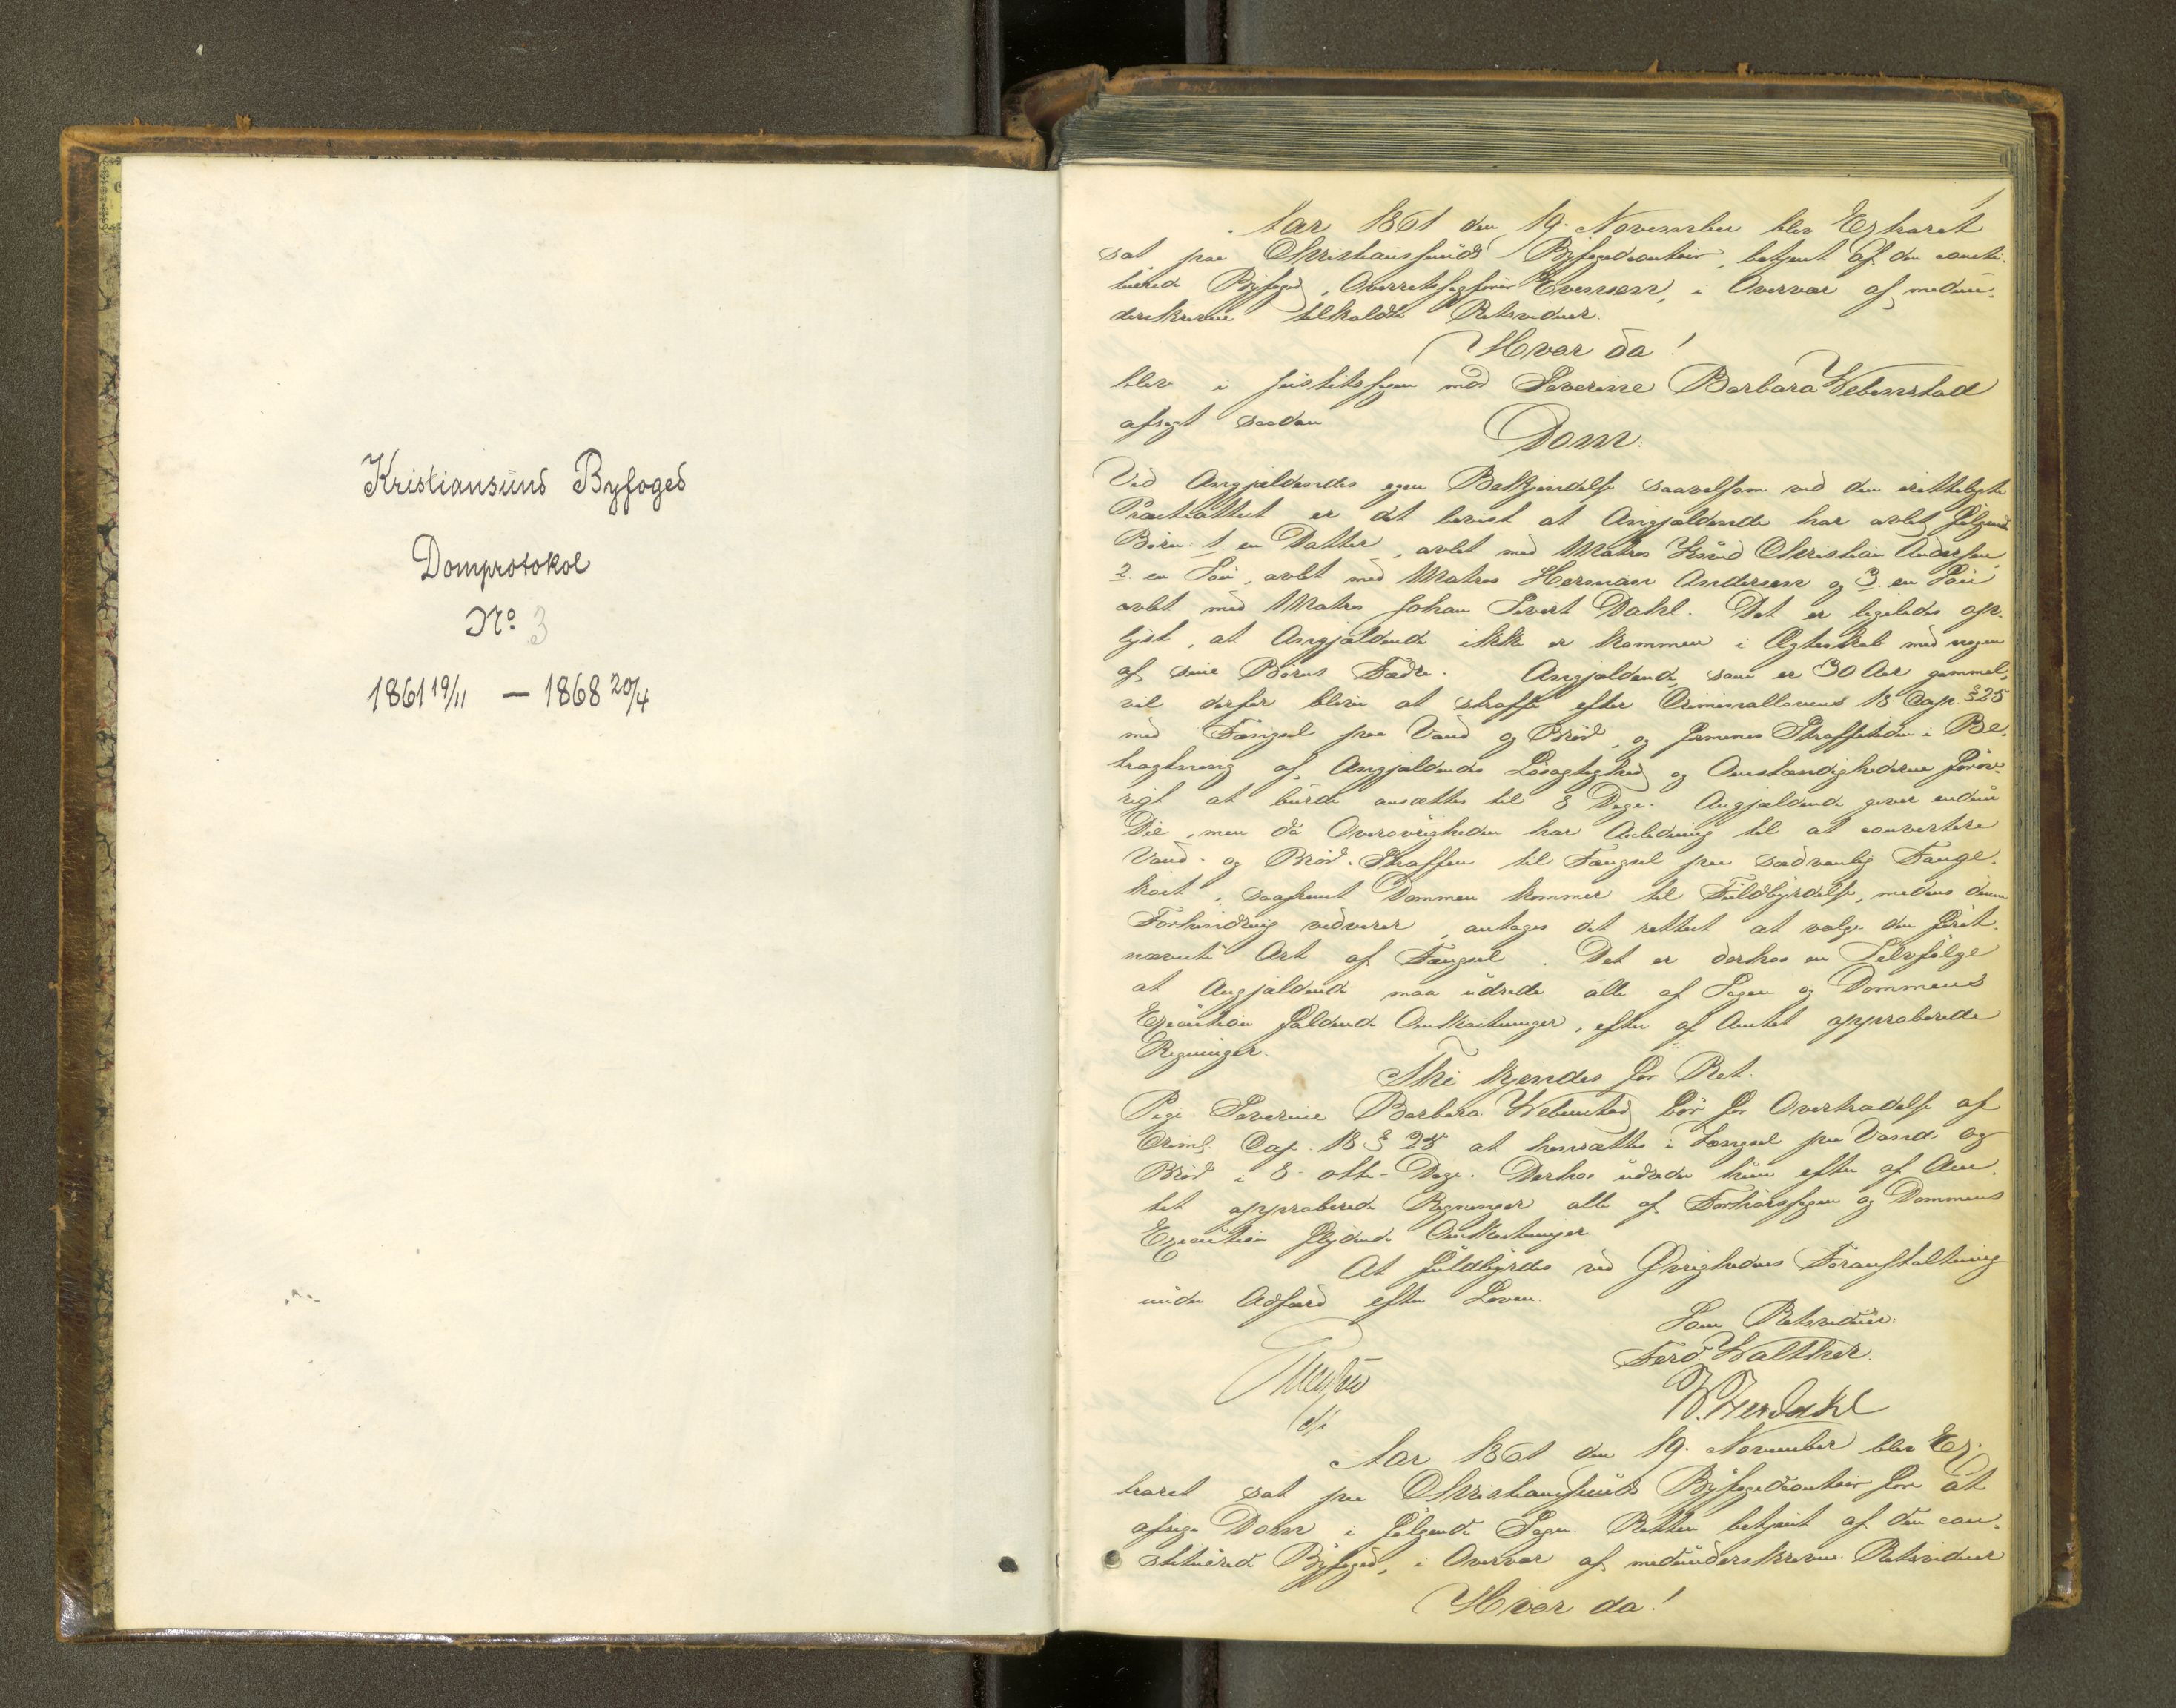 Kristiansund Byfoged
Domprotokol
No 3
1861 19/11 — 1868 20/4
1
Aar 1861 den 19. November blev Exharet
sat paa Christianssunds Byfogedcontoir, betjent af den consti-
tuered Byfoged, Overretssagfører Evensen, i Overvær af medun-
derskrevne tilkaldte Retsvidner.
Hvor da!
blev i Justitssagen mod Severine Barbara Webenstad
afsagt saadan
Dom:
Ved Angjældendes egen Bekjendelse saavelsom ved den erettelagte
Præsteattest er det bevist at Angjældende har avlet følgende
Børn: 1. en Datter, avlet med Matros Knud Christian Andersen
2. en Søn, avlet med Matros Herman Andersen og 3. en Søn
avlet med Matros Johan Sivert Dahl. Det er ligeledes op-
lyst, at Angjældende ikke er kommen i Ægteskab med nogen
af sine Børns Fædre. Angjældende, som er 30 Aar gammel,
vil derfor blive at straffe efter Criminallovens 18 Cap. § 25
med Fængsel paa Vand og Brød, og formenes Straffetiden i Be-
tragtning af Angjældendes Løsagtighed og Omstændighederne forøv-
rigt at burde ansættes til 8 Dage. Angjældende giver endnu
Die, men da Overøvrigheden har Anledning til at convertere
Vand- og Brød-Straffen til Fængsel paa sædvanlig Fange-
kost, saafremt Dommen kommer til Fuldbyrdelse, medens denne
Forhindring vedvarer, antages det rettest at vælge den først-
nævnte Art af Fængsel. Det er derhos en Selvfølge
at Angjældende maa udrede alle af Sagen og Dommens
Execution faldende Omkostninger, efter af Amtet approberede
Regninger.
Thi kjendes for Ret.
Pige Severine Barbara Webenstad bør for Overtrædelse af
Criml. Cap. 18 § 25 at hensættes i Fængsel paa Vand og
Brød i 8 - otte - Dage. Derhos udreder hun efter af Am-
tet approberede Regninger alle af Forhørssagen og Dommens
Execution flydende Omkostninger.
At fuldbyrdes ved Øvrighedens Foranstaltning
under Adfærd efter Loven.
Som Retsvidner:
Ferd. Walther.
W. Werdahl
Aar 1861 den 19. November blev Ex-
haret sat paa Christianssunds Byfogedcontoir for at
afsige Dom i følgende Sager. Retten betjent af den con-
stituered Byfoged, i Overvær af medunderskrevne Retsvidner
Hvor da!